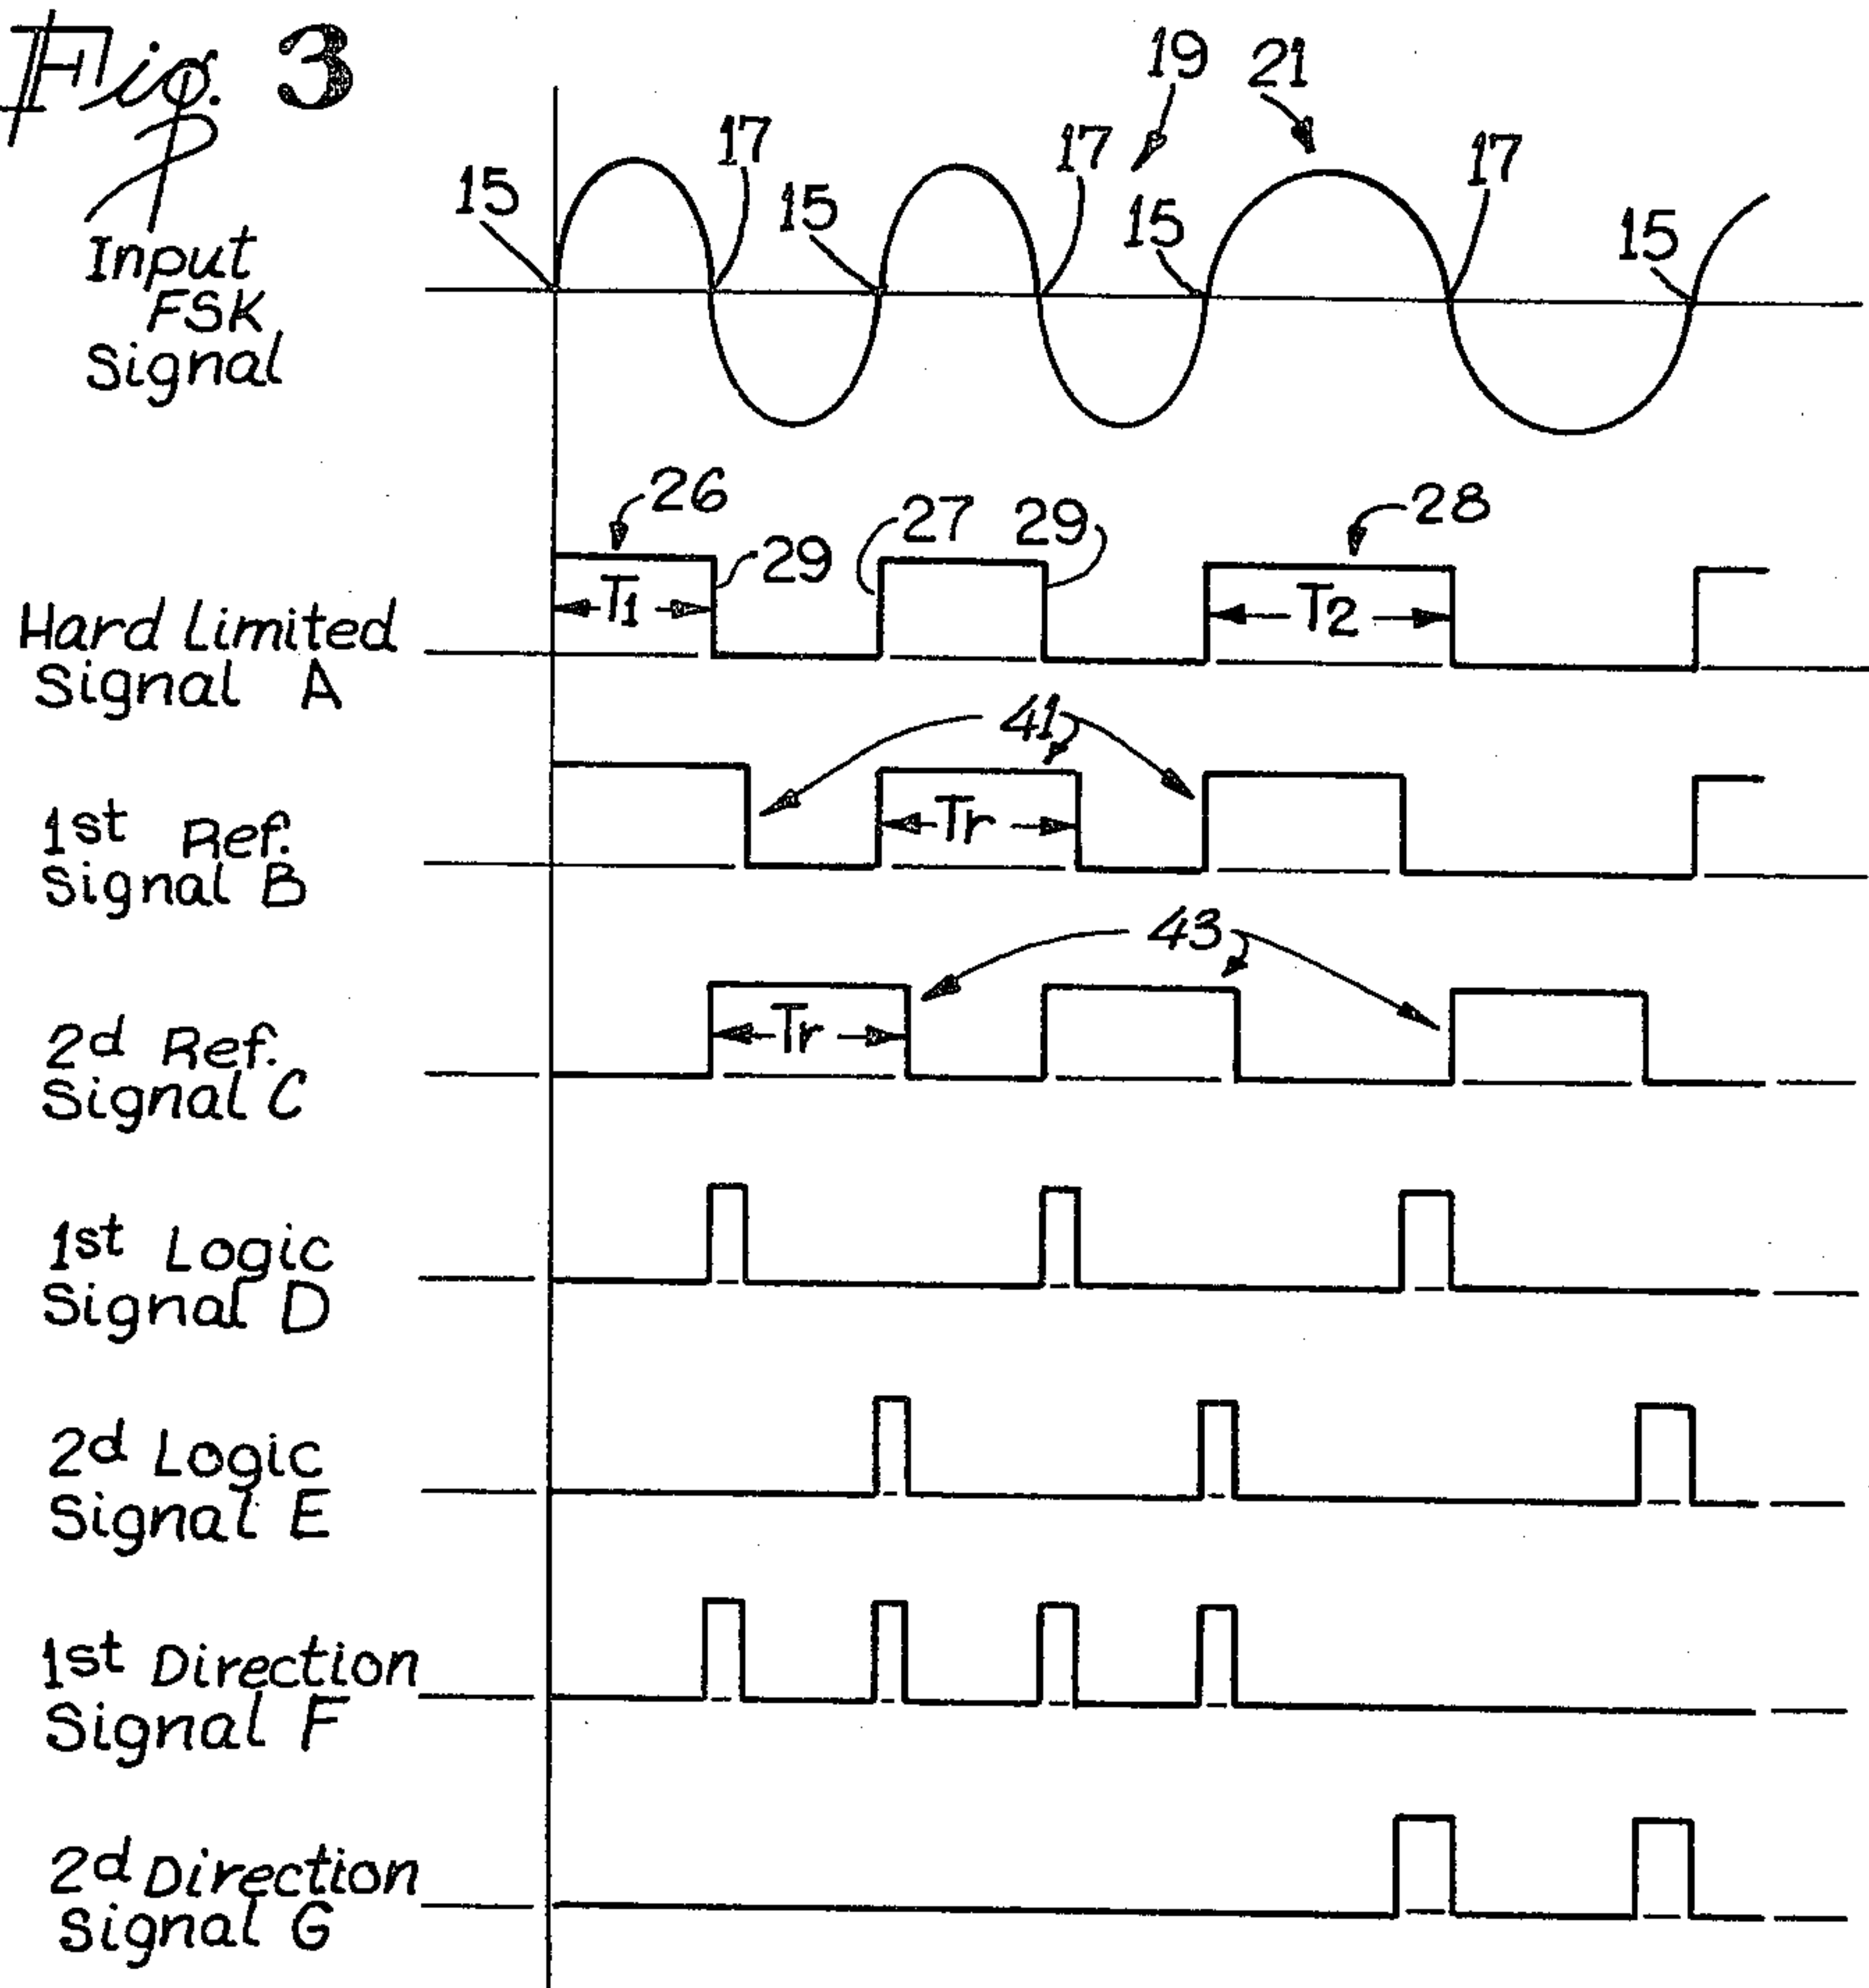 Fig. 3
19 21
17 17 17
15 15 15 15
Input
FSK
Signal
26 27 29 28
29
T1 T2
Hard Limited
Signal A
41
1st Ref.
Signal B
Tr
43
2d Ref.
Signal C
Tr
1st Logic
Signal D
2d Logic
Signal E
1st Direction
Signal F
2d Direction
Signal G